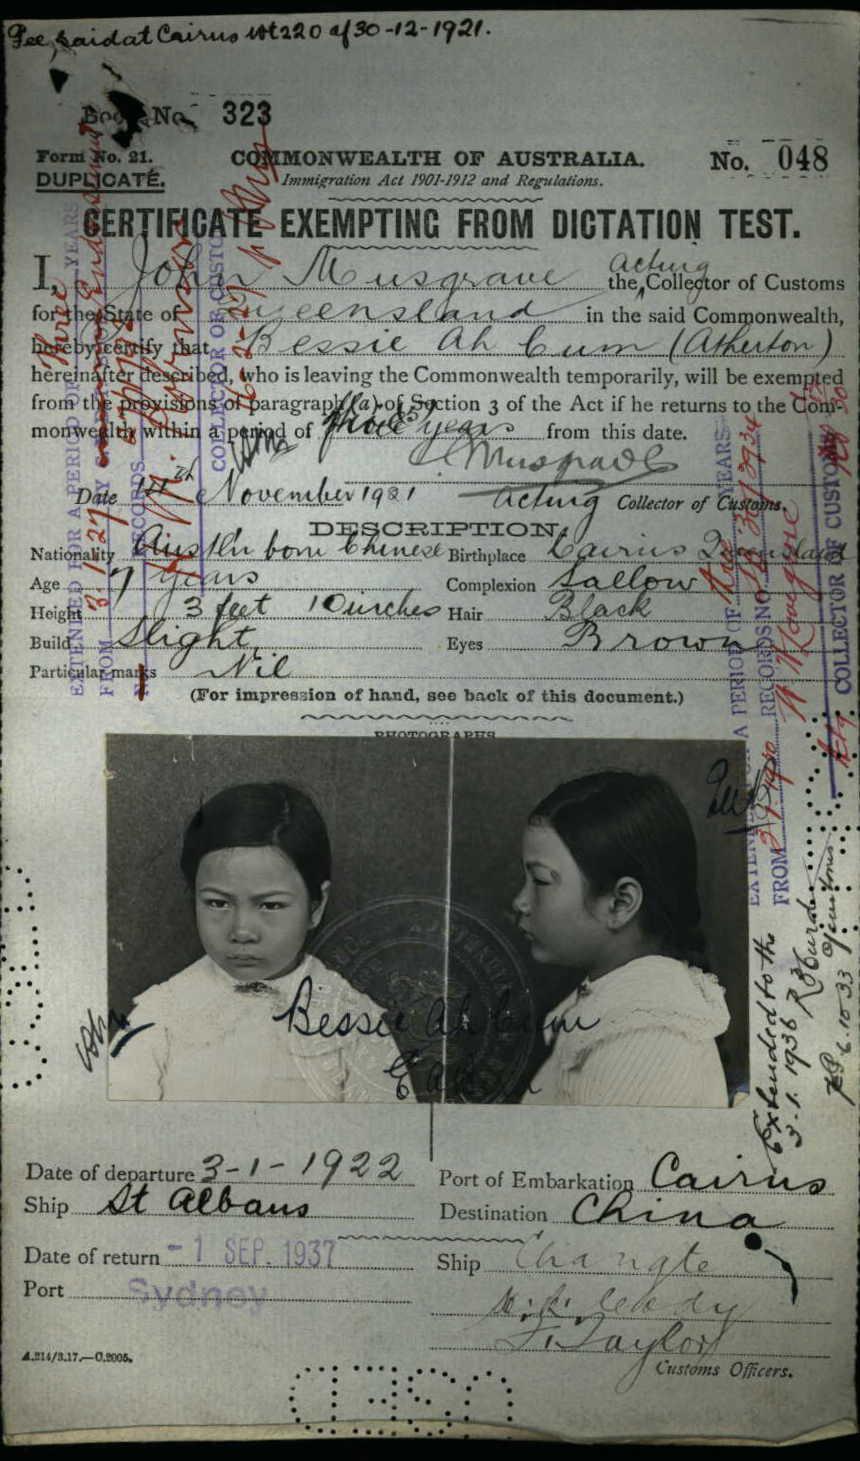 Fee paid at Cairns 220 of 30-12-1921.
Book No. 323
Form No. 21.
COMMONWEALTH OF AUSTRALIA.
No. 048
DUPLICATE.
Immigration Act 1901-1912 and Regulations.
CERTIFICATE EXEMPTING FROM DICTATION TEST.
I, John Musgrave the Acting Collector of Customs
for the State of Queensland in the said Commonwealth,
hereby certify that Bessie Ah Cum (Atherton)
hereinafter described, who is leaving the Commonwealth temporarily, will be exempted
from the provisions of paragraph (a) of Section 3 of the Act if he returns to the Com-
monwealth within a period of three years from this date.
J Musgrave
Date November 1921 Acting Collector of Customs.
DESCRIPTION.
Nationality Austln born Chinese Birthplace Cairns Queensland
Age 7 years Complexion Sallow
Height 3 feet 10 inches Hair Black
Build Slight Eyes Brown
Particular marks Nil
(For impression of hand, see back of this document.)
PHOTOGRAPHS
Bessie Ah Cum
EXTENDED FOR A PERIOD OF Three YEARS
FROM 3.1.27
RECORDS
COLLECTOR OF CUSTOMS
EXTENDED FOR A PERIOD OF YEARS
FROM RECORDS NO.
COLLECTOR OF CUSTOMS
Extended to the
3-1-1936
6.10.33
Date of departure 3-1-1922 Port of Embarkation Cairns
Ship St Albans Destination China
Date of return -1 SEP. 1937 Ship Changte
Port Sydney
J. Taylor
A.214/3.17.—C.2005.
Customs Officers.